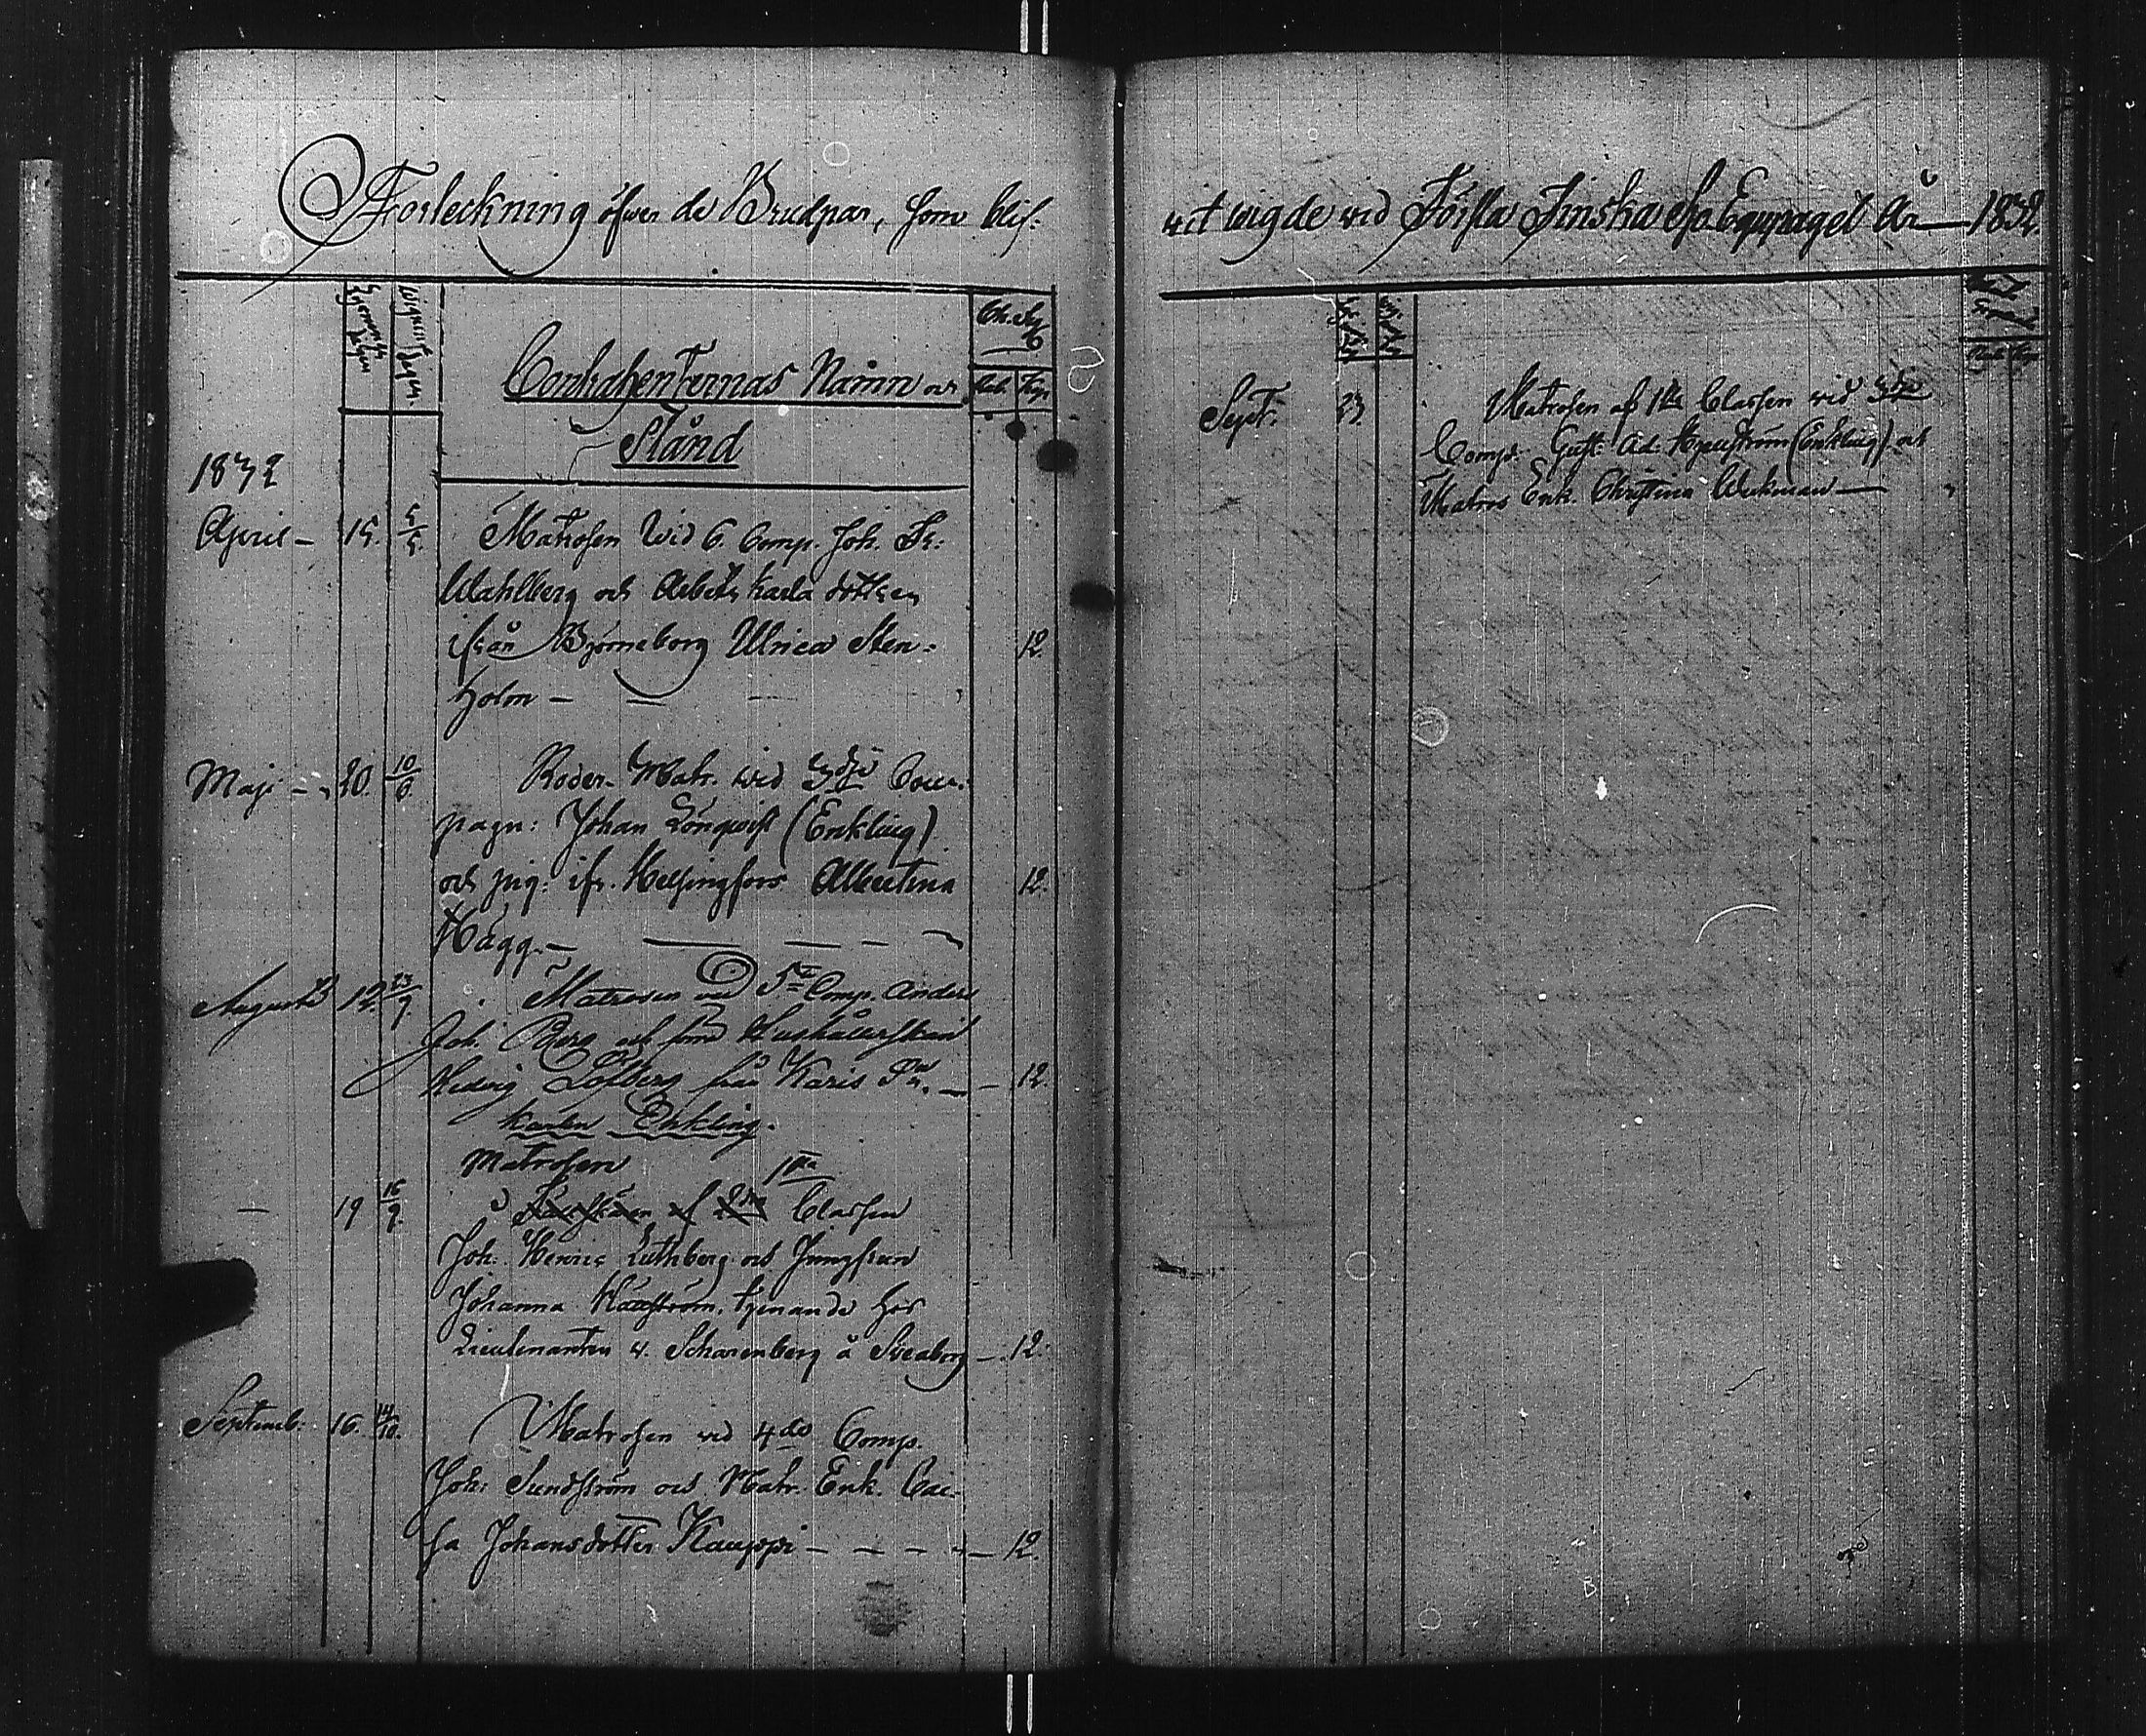 Förteckning öfwer de Brudpar, som blif-
Lysnings dagen
Wignings dagen
Contrahenternas Namn och
Stånd
Rub. Kop.
1832
April – 15. 5/5. Matrosen wid 6. Comp. Joh. Fr:
Wahlberg och Arbets karls dottren
ifrån Björneborg Ulrica Sten- 12.
holm –
Maji – 20. 10/6 Roder- Matr. wid 3dje Com-
pagn: Johan Lönqwist (Enkling)
och pig: ifr. Helsingfors Albertina 12.
Hägg. –
Augusti 12. 23/9. Matrosen wid 5te Comp. Anders
Joh. Berg och Hushållerskan
Hedvig Löfberg från Karis Sn. – 12.
karlen Enkling.
Matrosen 1sta
– 19 16/9. Classen
Joh. Henric Luthberg och Jungfrun
Johanna tjenande hos
Lieutenanten v. Scharenberg å Sveaborg – 12.
Septemb: 16. 14/10. Matrosen wid 4de Comp.
Joh: Sundström och Matr. Enk. Cai-
sa Johansdotter Kauppi – – – – 12.
wit wigde wid Första Finska Sjö Equipaget År – 1832.
Sept. 23. Matrosen af 1sta Classen wid 3dje
Comp. Gust. Ad. (Enkling) och
Matros Enk. Christina Wekman –